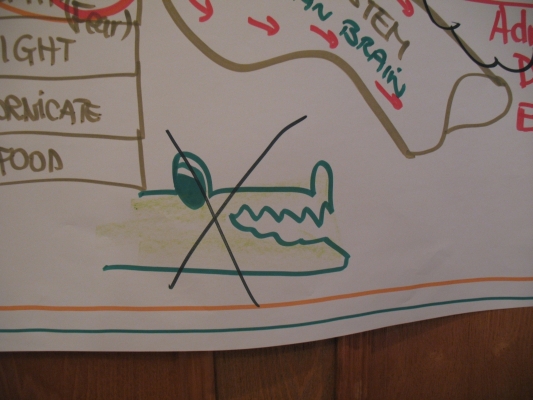 (Fear)
IGHT
ORNICATE
FOOD
STEM
AN BRAIN
Ad
E